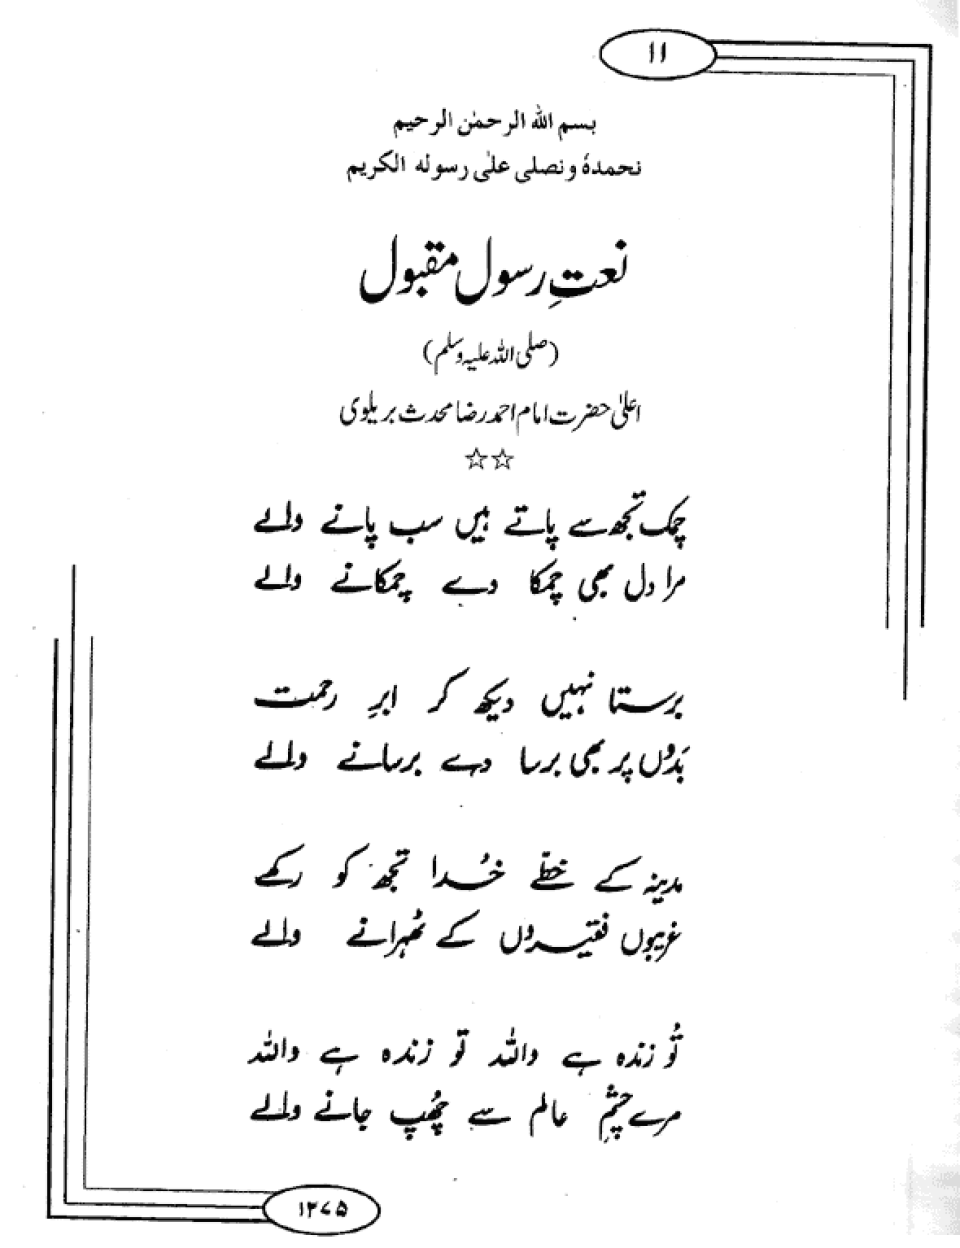 ١١
بسم الله الرحمٰن الرحیم
نحمدہٗ و نصلی علیٰ رسوله الکریم
نعتِ رسول مقبول
(صلی اللہ علیہ وسلم)
اعلیٰ حضرت امام احمد رضا محدث بریلوی
☆☆
چمک تجھ سے پاتے ہیں سب پانے والے
مرا دل بھی چمکا دے چمکانے والے
برستا نہیں دیکھ کر ابرِ رحمت
بَدُوں پر بھی برسا دے برسانے والے
مدینہ کے خطّے خُدا تجھ کو رکھے
غریبوں فقیروں کے ٹھہرانے والے
تُو زندہ ہے واللہ تو زندہ ہے واللہ
مرے چشمِ عالم سے چُھپ جانے والے
۱۲۷۵